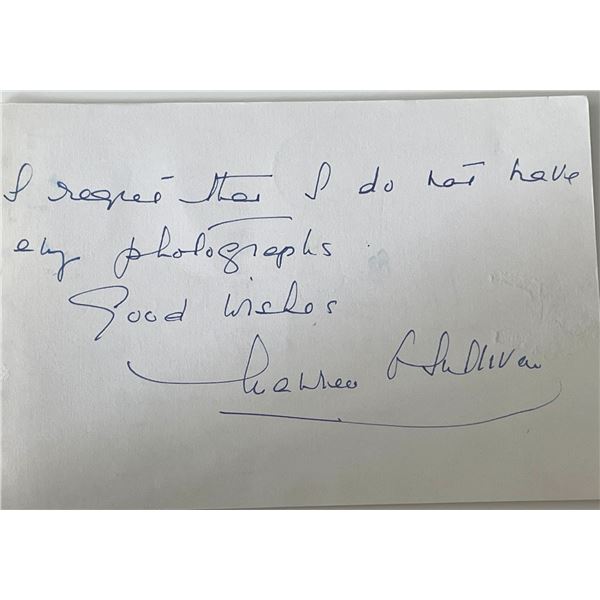 I regret that I do not have
any photographs.
Good wishes
O'Sullivan